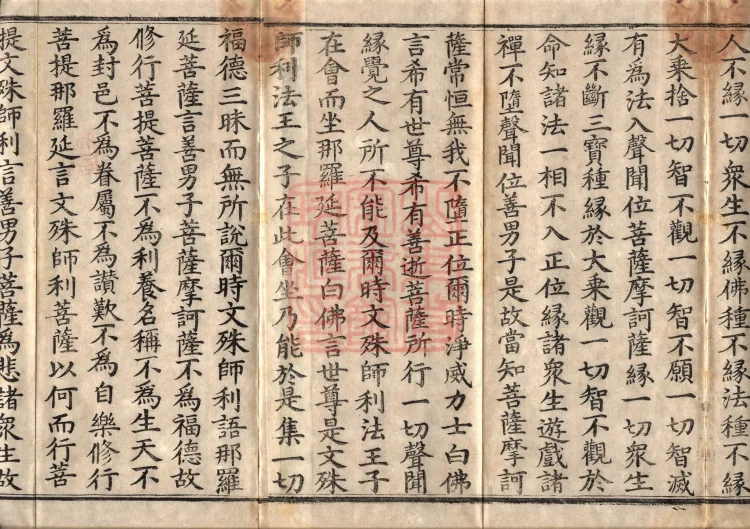 人不緣一切衆生不緣佛種不緣法種不緣
大乘捨一切智不觀一切智不願一切智滅
有爲法入聲聞位菩薩摩訶薩緣一切衆生
緣不斷三寶種緣於大乘觀一切智不觀於
命知諸法一相不入正位緣諸衆生遊戲諸
禪不墮聲聞位善男子是故當知菩薩摩訶
薩常恒無我不墮正位爾時淨威力士白佛
言希有世尊希有善逝菩薩所行一切聲聞
緣覺之人所不能及爾時文殊師利法王子
在會而坐那羅延菩薩白佛言世尊是文殊
師利法王之子在此會坐乃能於是集一切
福德三昧而無所說爾時文殊師利語那羅
延菩薩言善男子菩薩摩訶薩不爲福德故
修行菩提菩薩不爲利養名稱不爲生天不
爲封邑不為眷屬不為讃歎不為自樂修行
菩提那羅延言文殊師利菩薩以何而行菩
提文殊師利言善男子菩薩爲悲諸衆生故